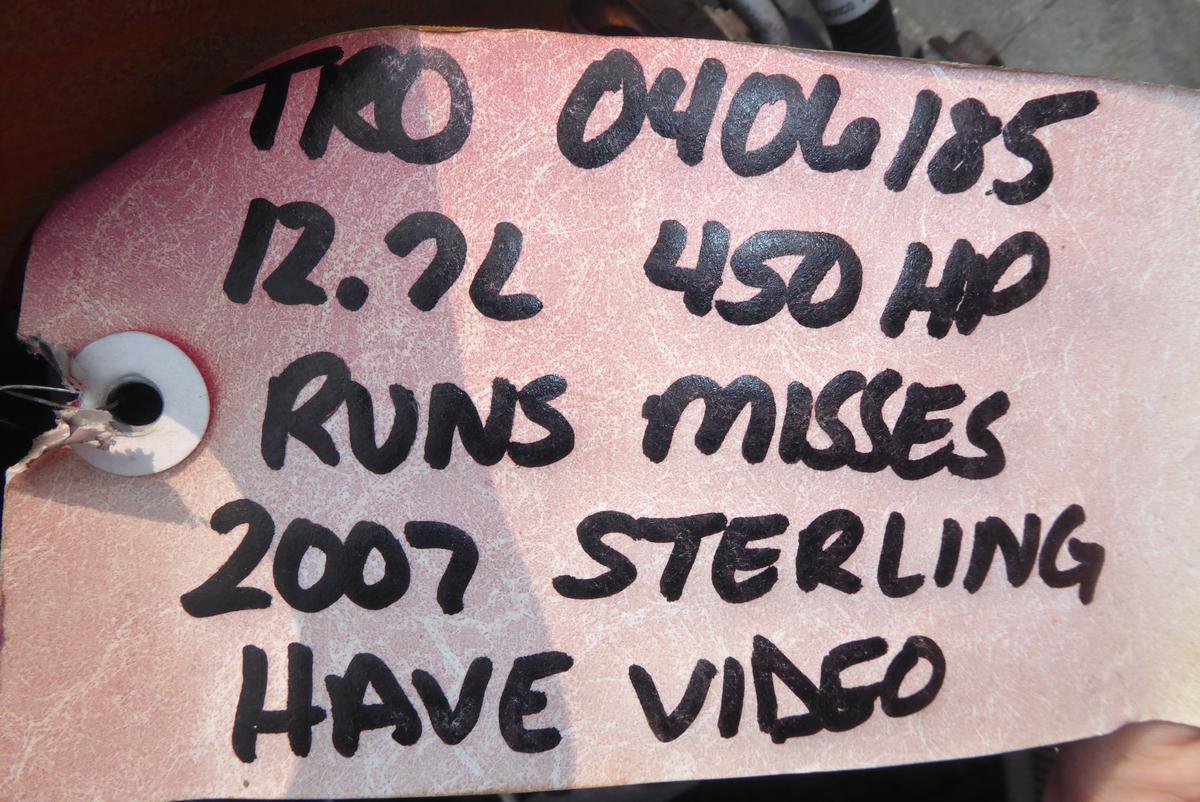 TRO 0406185
12.7L 450 HP
RUNS MISSES
2007 STERLING
HAVE VIDEO